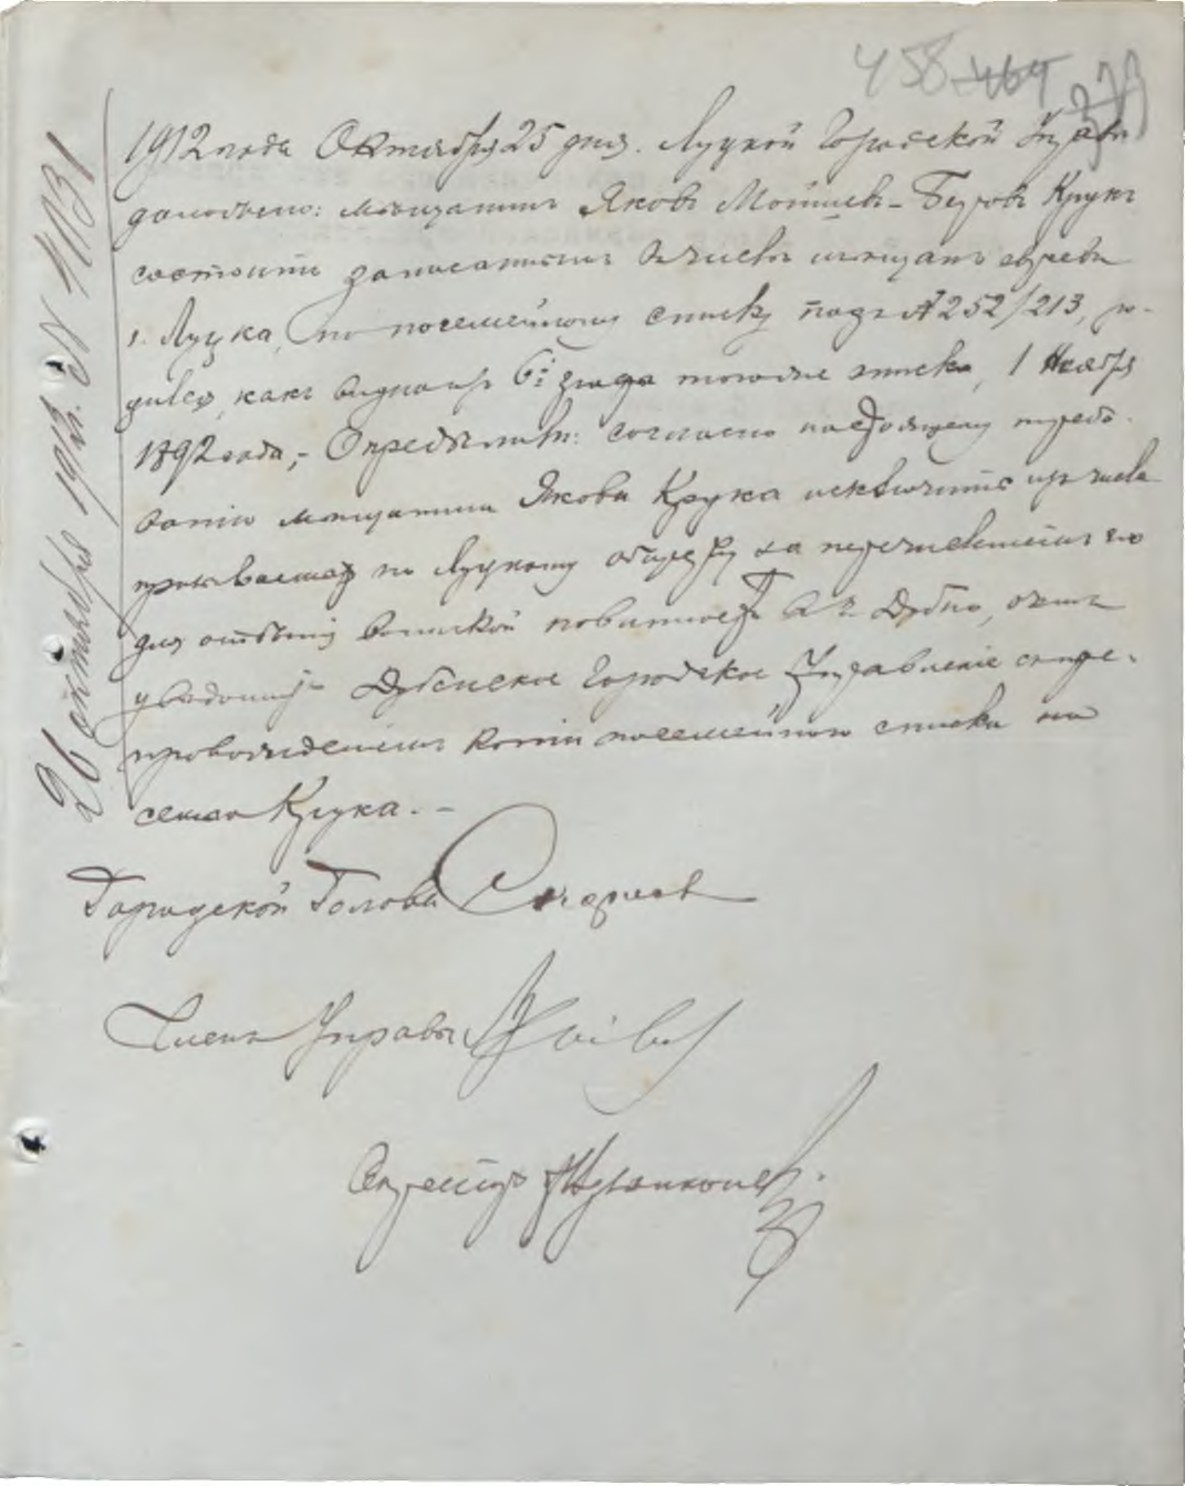 458 464 379
26 октября 1912 г. № 4131
1912 года Октября 25 дня. Луцкой Городской Управе
доложено: мещанинъ Яковъ Мойшев-Беровъ Крукъ
состоитъ записаннымъ въ числѣ мещанъ евреевъ
г. Луцка, по посемейному списку подъ № 252/213, ро-
дился, какъ видно изъ 6й графы того же списка, 1 Ноября
1892 года,- Опредѣлили: согласно настоящему требо-
ванію мещанина Якова Крука исключить изъ числа
призываемыхъ по Луцкому за перечисленіемъ его
для отбытія воинской повинности въ г. Дубно, о чемъ
увѣдомить Дубенское Городское Управленіе съ пре-
провожденіемъ копіи посемейного списка на
семью Крука. -
Городской Голова
Членъ Управы
Секретарь